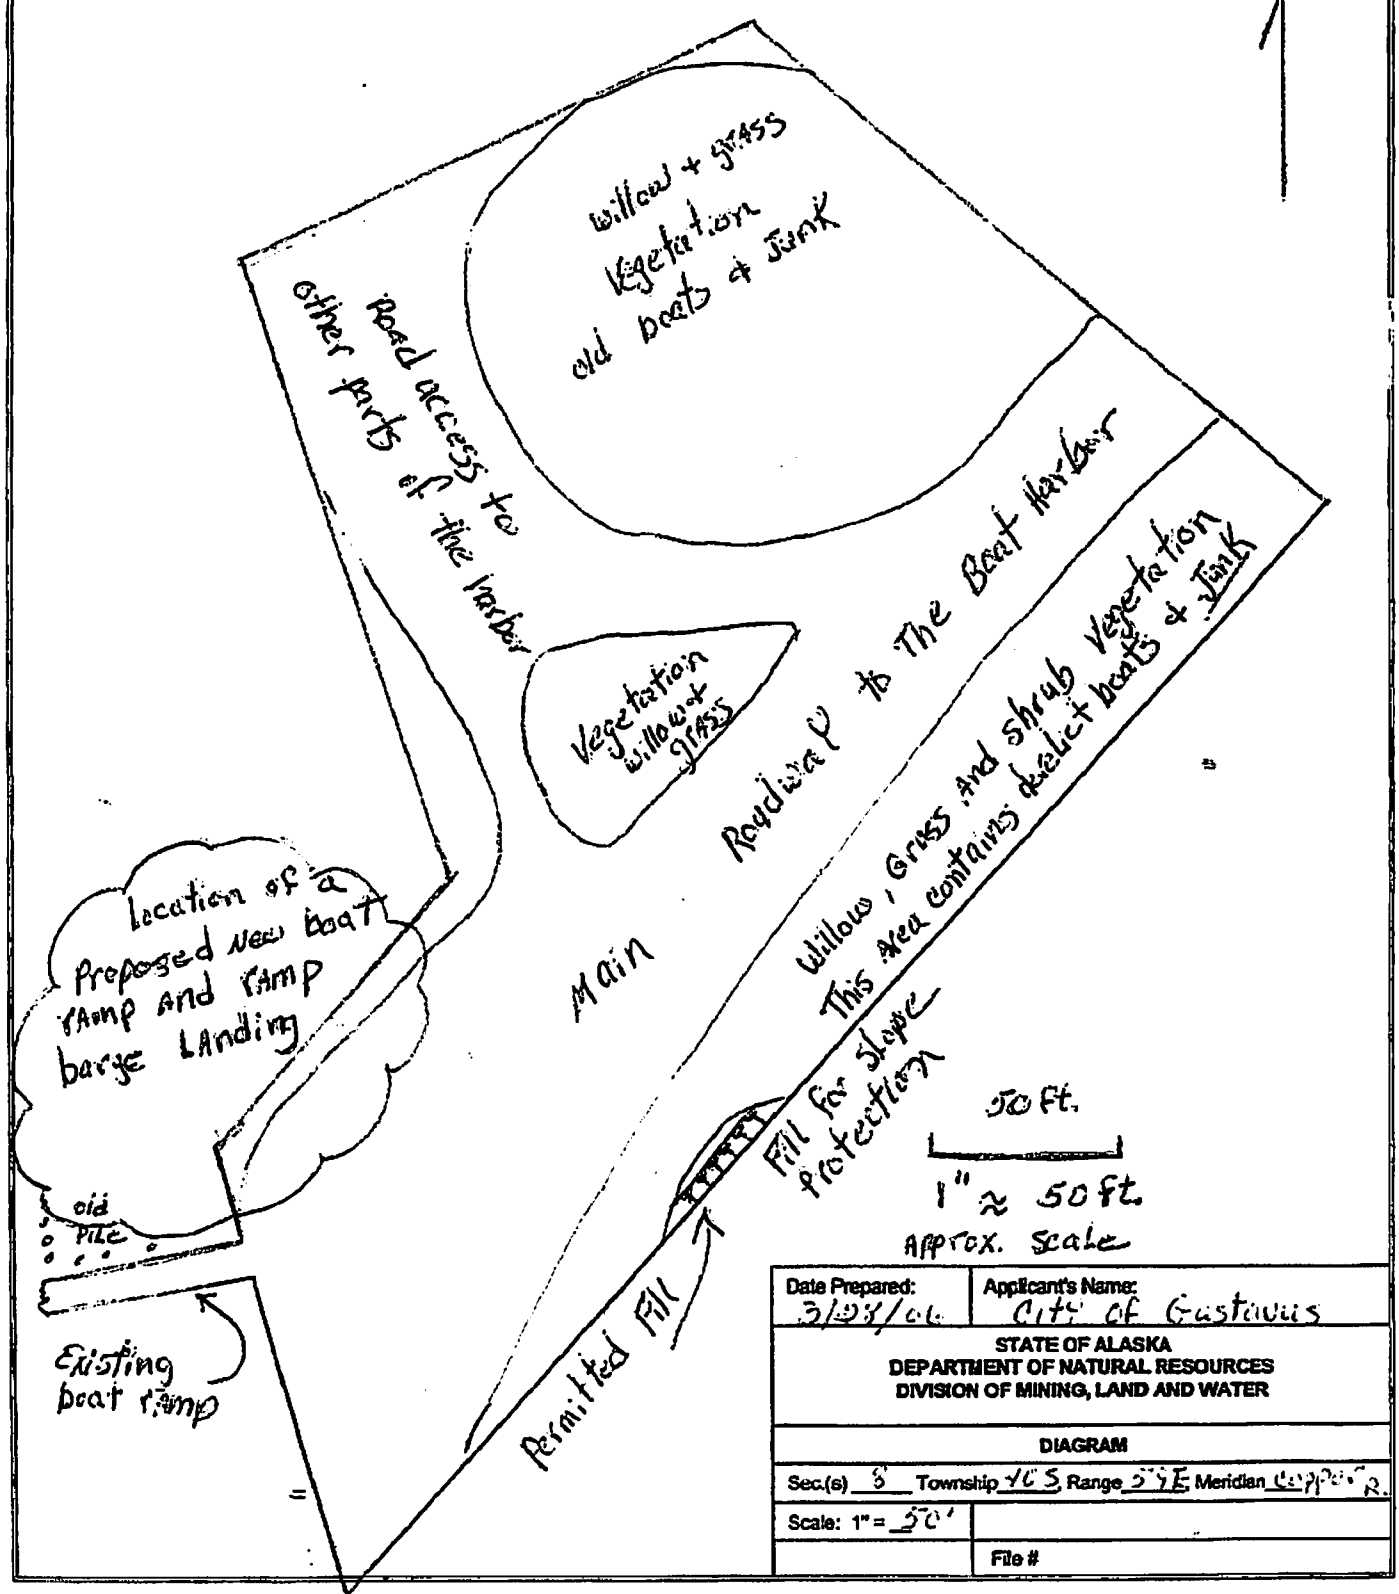 willow + grass
Vegetation
old boats & Junk
Road access to
other parts of the harbor
Vegetation
willow +
grass
Main Roadway to The Boat Harbor
Willow, Grass And shrub Vegetation
This Area contains derelict boats & Junk
Location of a
Proposed New boat
rAmp And rAmp
barge LAnding
Fill for Slope
Protection
50 ft.
1" ≈ 50 ft.
Approx. Scale
old
PILE
Existing
boat ramp
Permitted Fill
Date Prepared:
Applicant's Name:
City of Gustavus
STATE OF ALASKA
DEPARTMENT OF NATURAL RESOURCES
DIVISION OF MINING, LAND AND WATER
DIAGRAM
Sec.(s) 8 Township 40 S, Range 59 E, Meridian Copper R.
Scale: 1" = 50'
File #